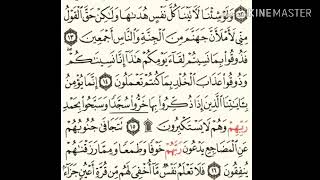 KINEMASTER
وَلَوْ شِئْنَا لَآتَيْنَا كُلَّ نَفْسٍ هُدَىٰهَا وَلَٰكِنْ حَقَّ الْقَوْلُ
مِنِّي لَأَمْلَأَنَّ جَهَنَّمَ مِنَ الْجِنَّةِ وَالنَّاسِ أَجْمَعِينَ ١٣
فَذُوقُوا بِمَا نَسِيتُمْ لِقَاءَ يَوْمِكُمْ هَٰذَا إِنَّا نَسِينَاكُمْ
وَذُوقُوا عَذَابَ الْخُلْدِ بِمَا كُنْتُمْ تَعْمَلُونَ ١٤ إِنَّمَا يُؤْمِنُ
بِآيَاتِنَا الَّذِينَ إِذَا ذُكِّرُوا بِهَا خَرُّوا سُجَّدًا وَسَبَّحُوا بِحَمْدِ
رَبِّهِمْ وَهُمْ لَا يَسْتَكْبِرُونَ ١٥ تَتَجَافَىٰ جُنُوبُهُمْ
عَنِ الْمَضَاجِعِ يَدْعُونَ رَبَّهُمْ خَوْفًا وَطَمَعًا وَمِمَّا رَزَقْنَاهُمْ
يُنْفِقُونَ ١٦ فَلَا تَعْلَمُ نَفْسٌ مَا أُخْفِيَ لَهُمْ مِنْ قُرَّةِ أَعْيُنٍ جَزَاءً